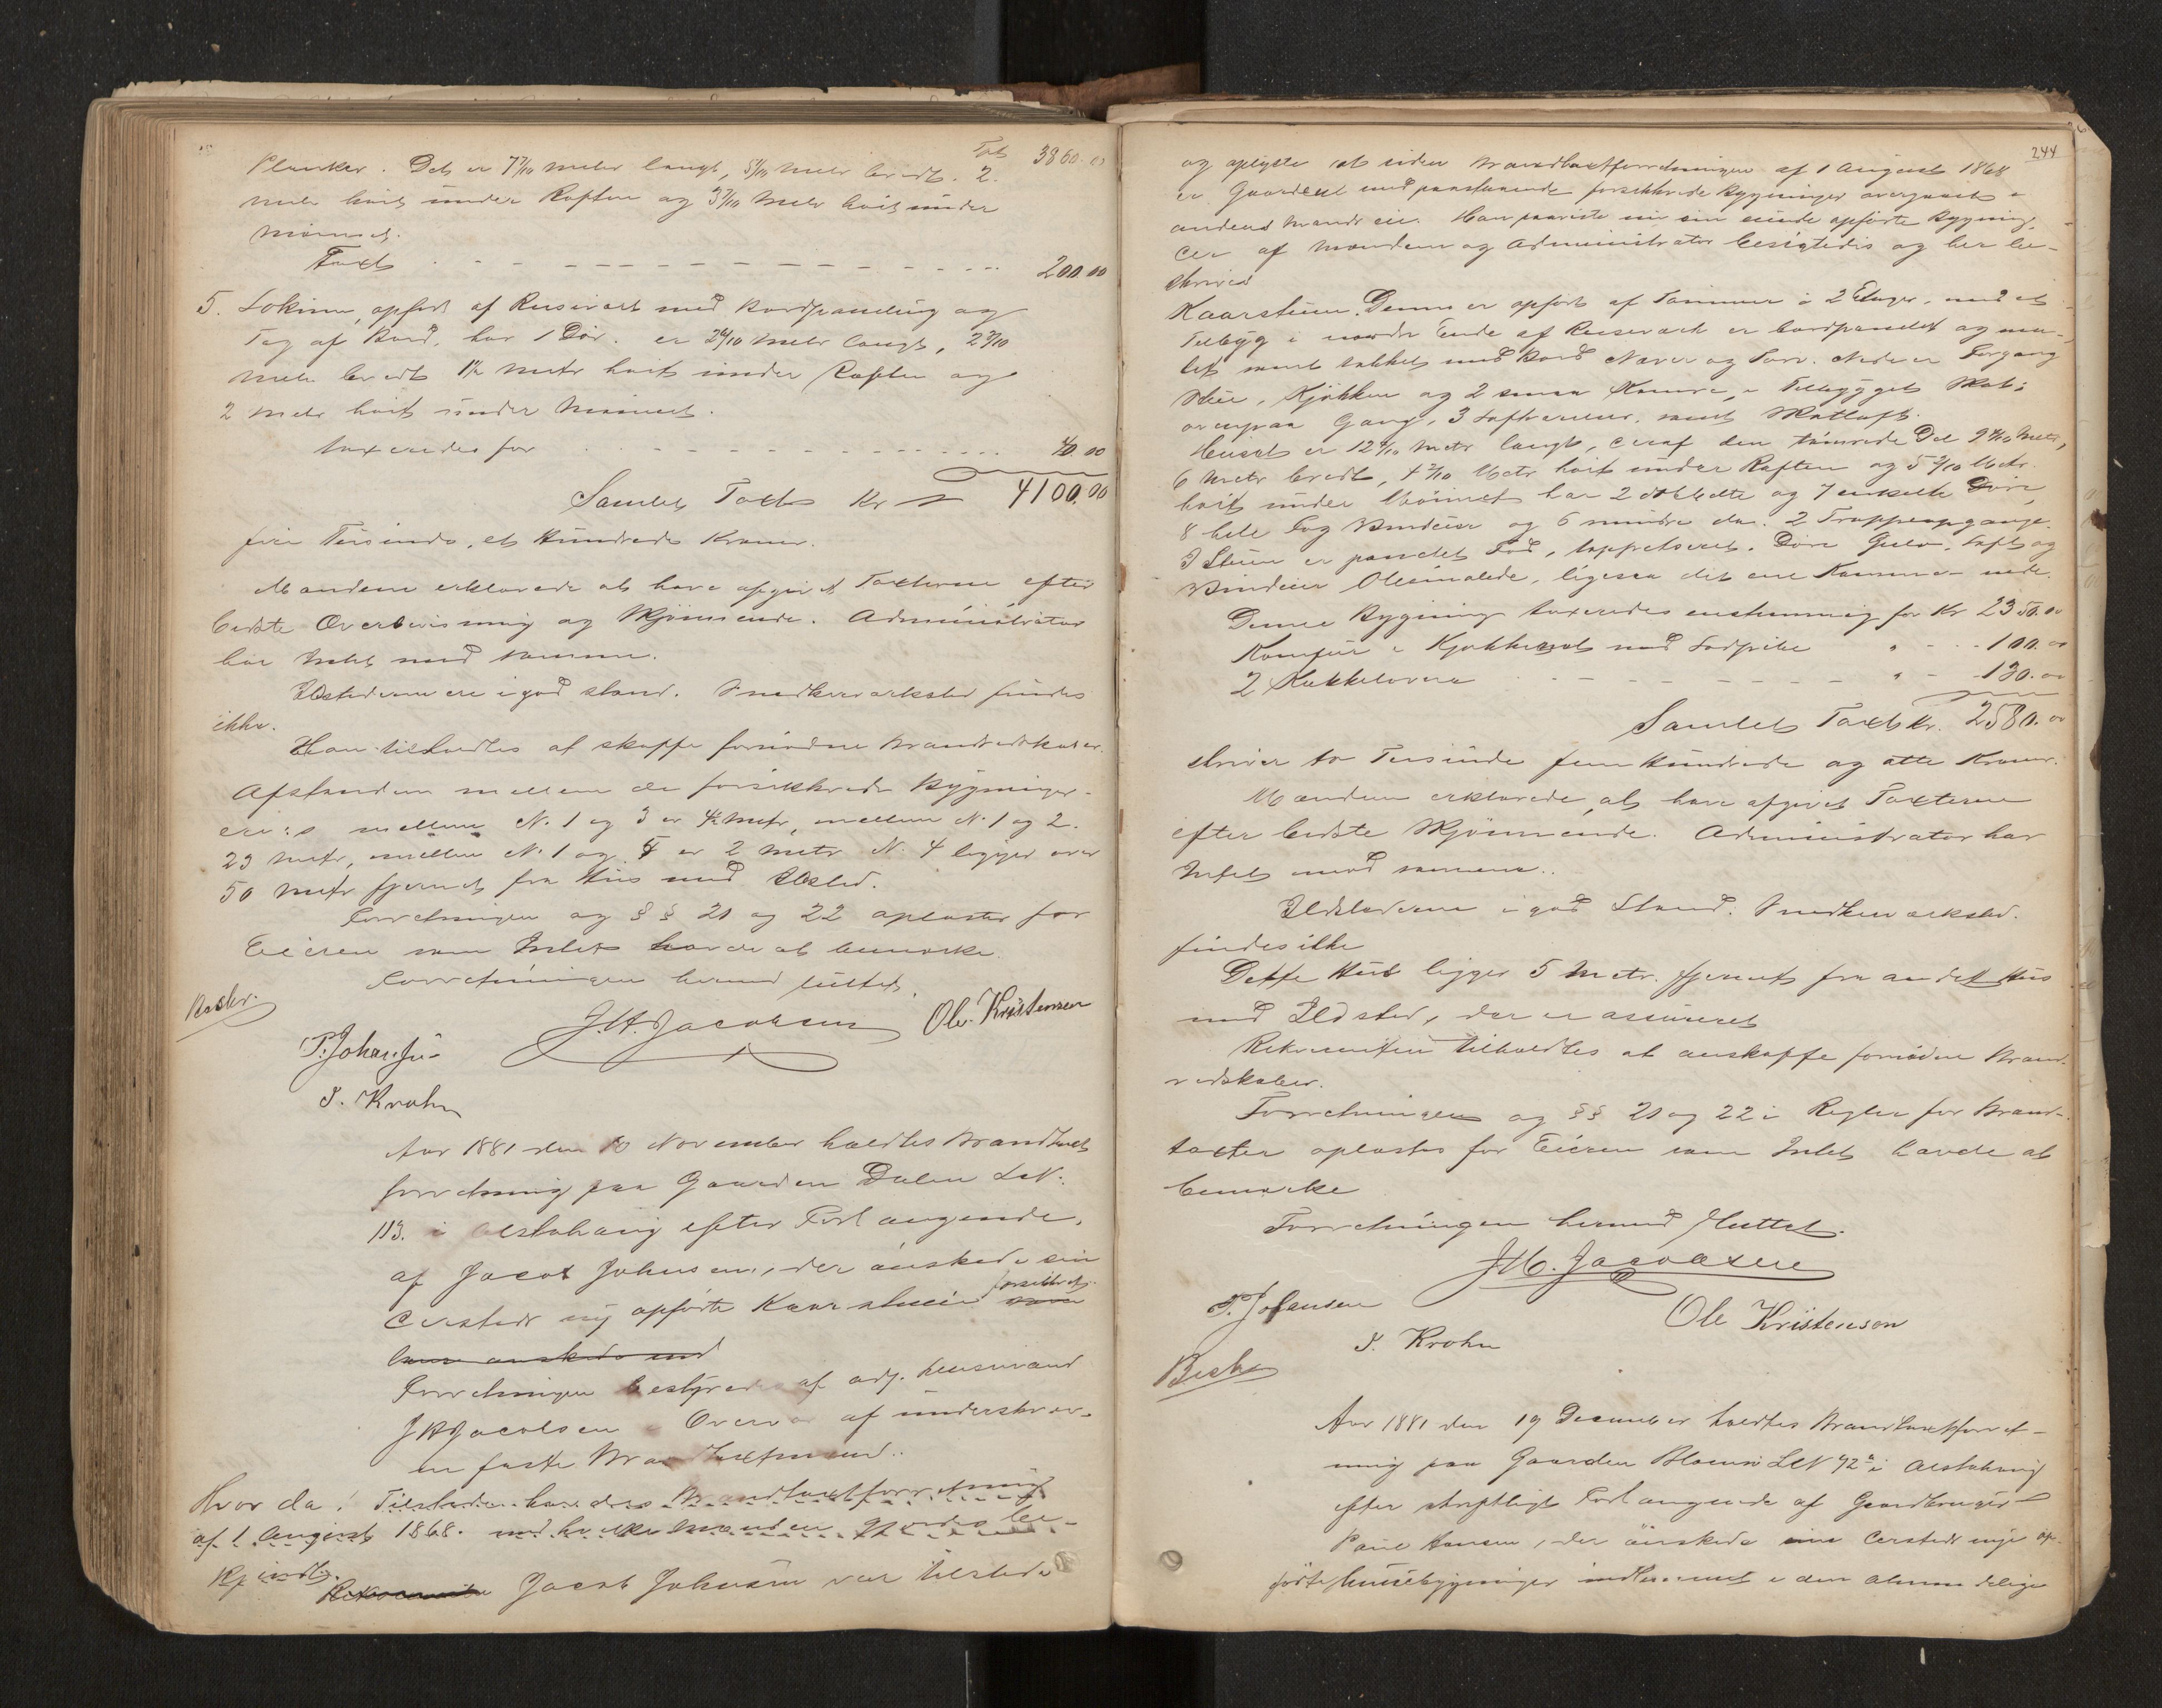 Tfs 3860.00
Planker. Det er 7 7/10 meter langt, 5 1/10 meter bredt. 2
meter høit under Raften og 3 7/10 Meter høit under
Mønnet.
Taxt 200.00
5. opført af Reisværk med Bordpanding og
Tag af Bord, har 1 Dør. er 3 4/10 Meter langt, 2 3/10
meter bredt 1 1/2 Meter høit under Raften og
2 meter høit under Mønnet.
taxeredes for 40.00
Samlet Taxt Kr 4100.00
fire Tusinde, et Hundrede Kroner.
Mændene erklærede at have afgivet Taxterne efter
bedste Overbevisning og Skjønnende. Administrator
har Intet mod samme.
Ildstederne ere i god stand. Snedkerværksted findes
ikke.
Han tilholdtes at skaffe fornødne Brandredskaber.
Afstanden mellem de forsikkrede Bygninger
mellem N. 1 og 3 er 4 1/2 Metr, mellem N. 1 og 2.
23 Metr, mellem N. 1 og 5 er 2 Metr N. 4 ligger over
50 Metr fjernet fra Hus med Ildsted.
Forretningen og § § 21 og 22 oplæstes for
Eieren som Intet havde at bemærke.
Forretningen hermed sluttet.
Beskr.
J.H. Jacobsen Ole Kristensen
P. Johansen
J. Krohn
Aar 1881 den 10 November holdtes Brandtaxt
forretning paa Gaarden Dalen LN.
113. i Alstahaug efter Forlangende,
af Jacob Johnsen, der ønskede sin
forsikkret
sammesteds ny opførte Kaarstuen
Forretningen bestyredes af adj. Lensmand
JHJacobsen i Overvær af underskrev-
ne faste Brandtaxtmænd.
Hvor da! Tilstede havdes Brandtaxtforretning
af 1 August 1868. med hvilken Mændene gjordes be-
kjendt.
Rekvirenten Jacob Johnsen var tilstede
244
og oplyste at siden Brandtaxtforretningen af 1 August 1868
er Gaarden med paastaaende forsikkrede Bygninger overgaaet i
anden Mands eie. Han paaviste nu sin eiende opførte Bygning,
der af Mændene og Administrator besigtedes og her be-
skrives
Kaarstuen. Denne er opført af Tømmer i 2 Etager, med et
Tilbyg i nordre Ende af Reisværk er bordpanelet og ma-
let samt takket med Bord Næver og Torv. Nede er Forgang
Stue, Kjøkken og 2 smaa Kamre, i Tilbygget Skot;
ovenpaa Gang, 3 Loftværelser, samt Skotloft.
Huset er 12 4/10 Metr langt, deraf den tømrede Del 9 4/10 Metr,
6 Metr bredt, 4 2/10 Metr høit under Raften og 5 9/10 Metr.
høit under Mønnet har 2 dobbelte og 7 enkelte Døre,
8 hele Fag Vinduer og 6 mindre do. 2 Trappeopgange.
I Stuen er panelet Fod, tappetseret. Døre Gulv, Loft og
Vinduer Oliemalede, ligesaa det ene Kammer nede.
Denne Bygning taxeredes enstemmig for Kr 2350.00
Komfur i Kjøkkenet med Lodpibe " - - 100.00
2 Kakkelovne " - - 130.00
Samlet Taxt Kr. 2580.00
skriver to Tusinde fem Hundrede og otte Kroner.
Mændene erklærede, at have afgivet Taxterne
efter bedste Skjønnende. Administrator har
Intet mod samme.
Ildstederne i god Stand. Snedkerværksted.
findes ikke
Dette Hus ligger 5 Metr. fjernet fra andet Hus
med Ildsted, der er assureret
Rekvirenten tilholdtes at anskaffe fornødne Brand-
redskaber.
Forretningen og §§ 21 og 22 i Regler for Brand-
taxter oplæstes for Eieren som Intet havde at
bemærke
Forretningen hermed sluttet.
J.H. Jacobsen
P. Johansen
Ole Kristensen
J. Krohn
Beskr
Aar 1881 den 19 December holdtes Brandtaxtforret-
ning paa Gaarden LN 92a i Alstahaug
efter skriftligt Forlangende af Gaardbruger
Hansen, der ønskede sine nye op-
førte Husebygninger indlemmet i den almindelige